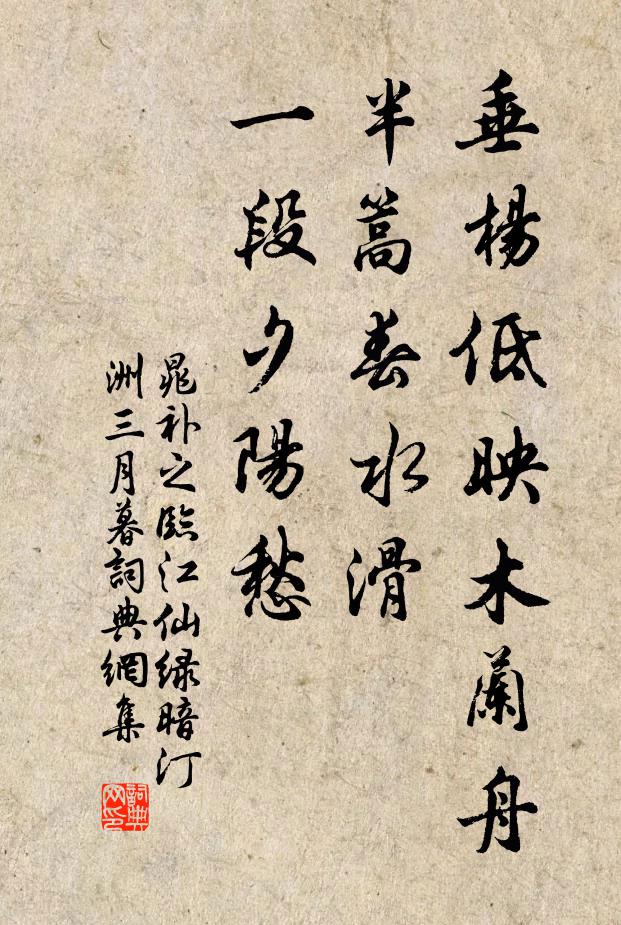 垂楊低映木蘭舟
半篙春水滑
一段夕陽愁
晁补之臨江仙绿暗汀
洲三月暮詞典網集
詞典网印